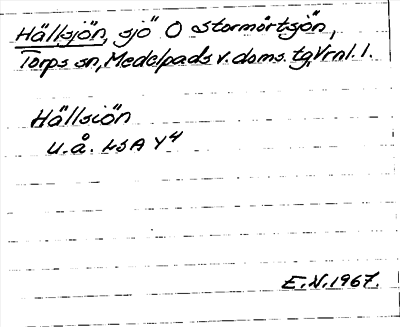 Hällsjön, sjö O Stormörtsjön,
Torps sn, Medelpads v. doms. tg, Vrnl. l.
Hällsiön
u.å. LSA Y4
E.N. 1967.